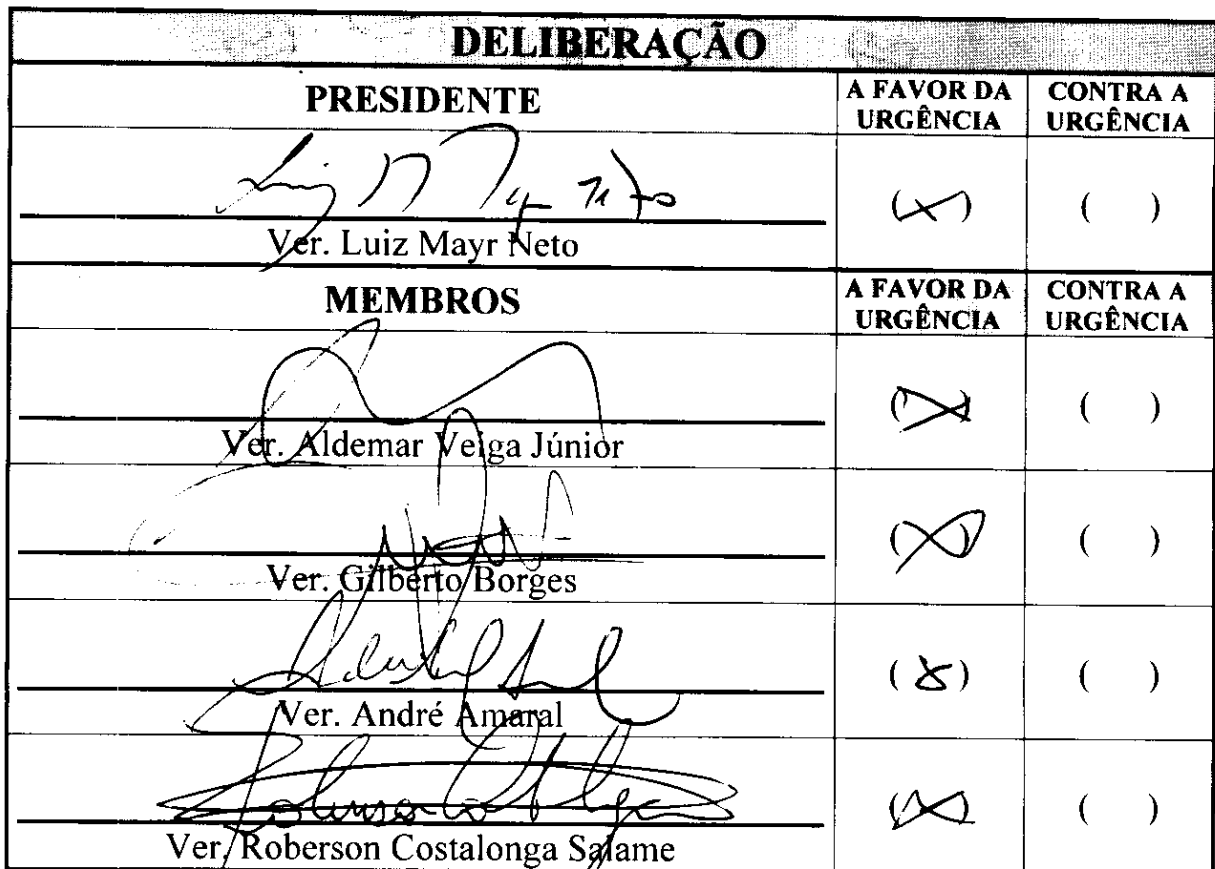 DELIBERAÇÃO
PRESIDENTE
A FAVOR DA URGÊNCIA
CONTRA A URGÊNCIA
Ver. Luiz Mayr Neto
(X)
( )
MEMBROS
A FAVOR DA URGÊNCIA
CONTRA A URGÊNCIA
Ver. Aldemar Veiga Júnior
(X)
( )
Ver. Gilberto Borges
(X)
( )
Ver. André Amaral
(X)
( )
Ver. Roberson Costalonga Salame
(X)
( )